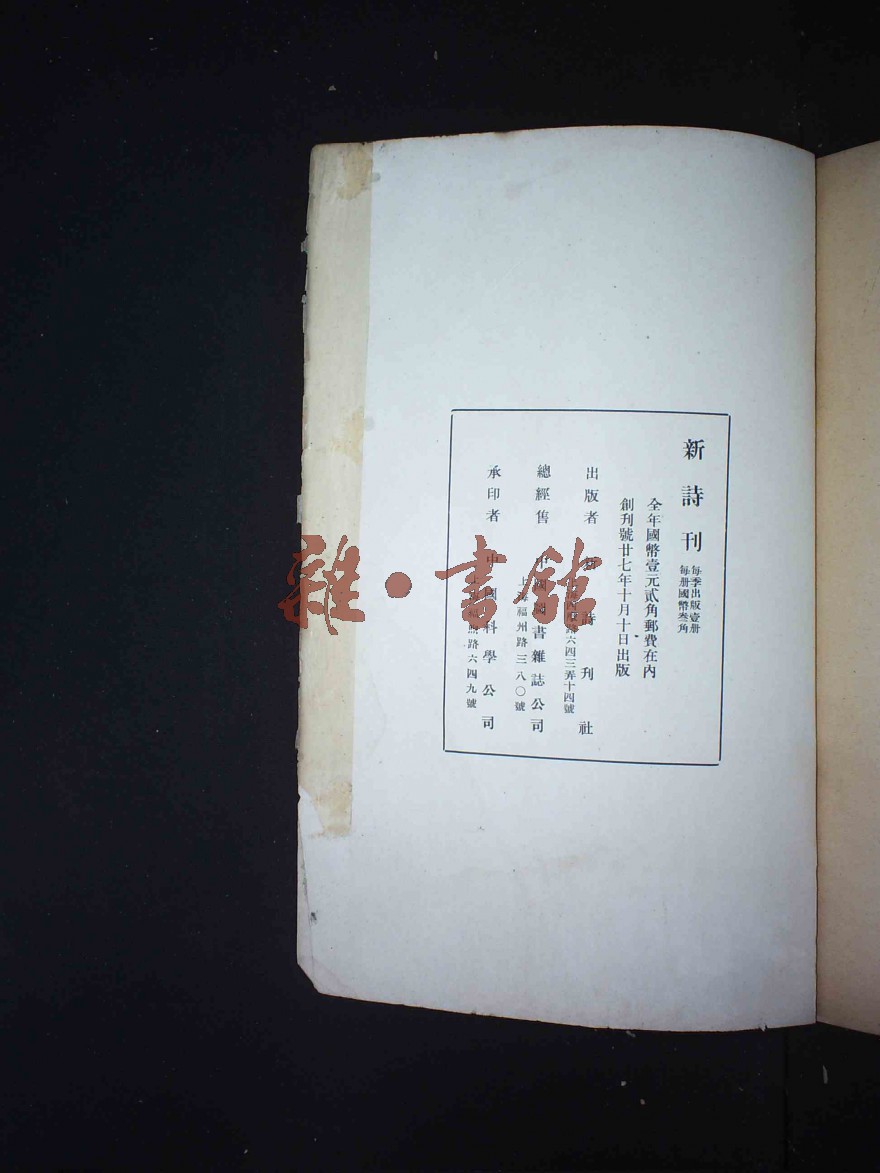 新詩刊
每季出版壹册
每册國幣叁角
全年國幣壹元貳角郵費在內
創刊號廿七年十月十日出版
出版者 詩刊社
路六四三弄十四號
總經售 中國圖書雜誌公司
上海福州路三八〇號
承印者 中國科學公司
路六四九號
雜·書館